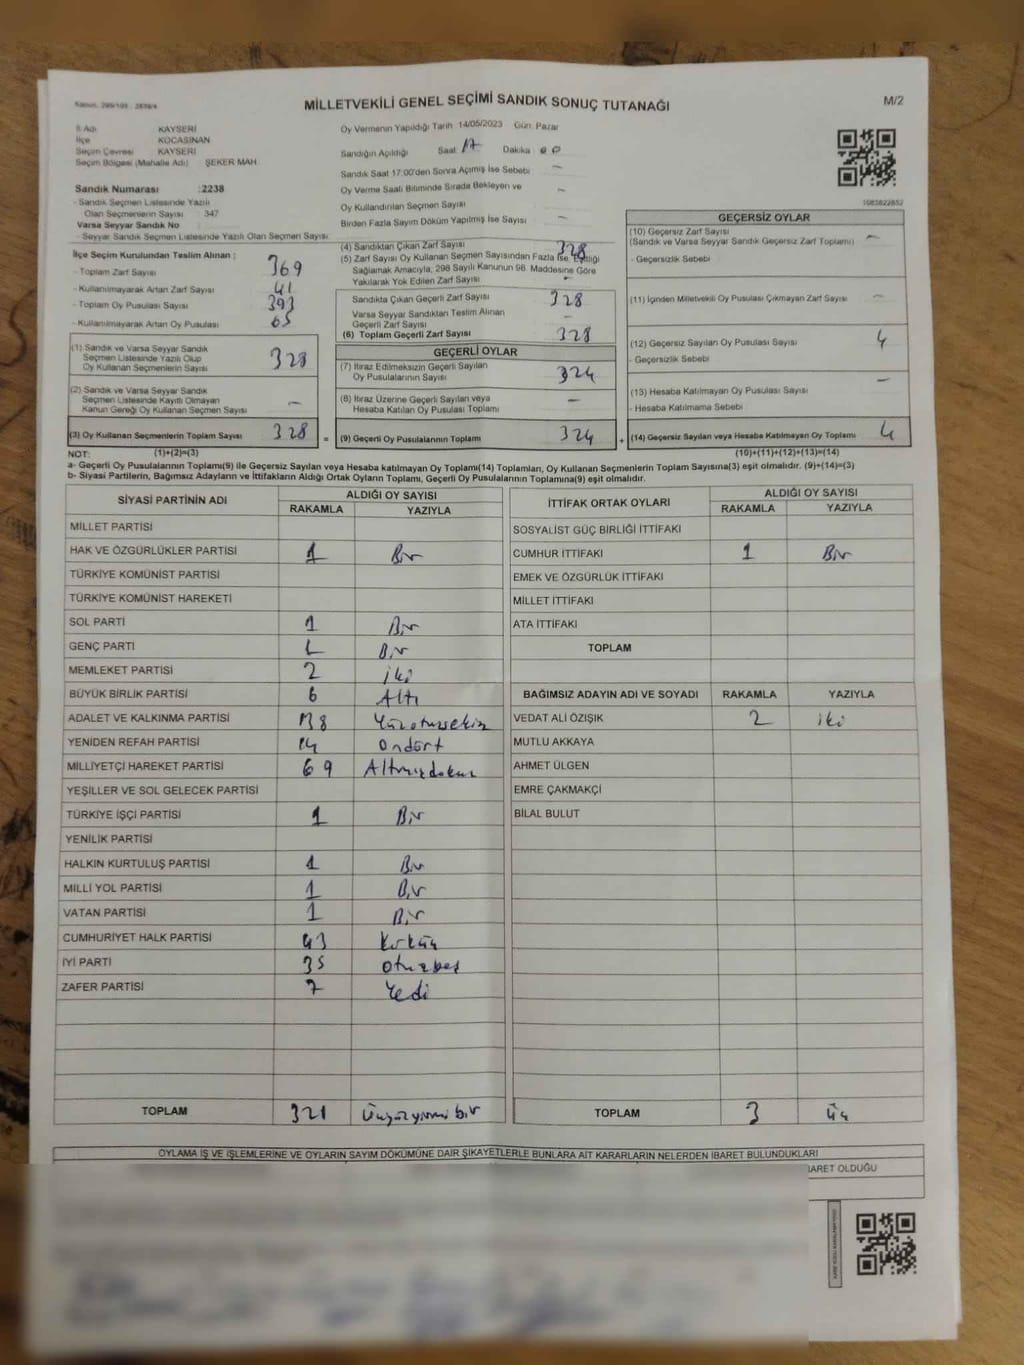 Kanun: 298/105 - 2839/4
MİLLETVEKİLİ GENEL SEÇİMİ SANDIK SONUÇ TUTANAĞI
M/2
İl Adı KAYSERİ
İlçe KOCASİNAN
Seçim Çevresi KAYSERİ
Seçim Bölgesi (Mahalle Adı) ŞEKER MAH.
Oy Vermenin Yapıldığı Tarih 14/05/2023 Gün: Pazar
Sandığın Açıldığı Saat 17 Dakika 00
Sandık Saat 17:00'den Sonra Açılmış İse Sebebi —
Oy Verme Saati Bitiminde Sırada Bekleyen ve
Oy Kullandırılan Seçmen Sayısı —
Birden Fazla Sayım Döküm Yapılmış İse Sayısı —
1083822852
Sandık Numarası :2238
- Sandık Seçmen Listesinde Yazılı
Olan Seçmenlerin Sayısı : 347
Varsa Seyyar Sandık No
- Seyyar Sandık Seçmen Listesinde Yazılı Olan Seçmen Sayısı:
İlçe Seçim Kurulundan Teslim Alınan :
- Toplam Zarf Sayısı 369
- Kullanılmayarak Artan Zarf Sayısı 41
- Toplam Oy Pusulası Sayısı 393
- Kullanılmayarak Artan Oy Pusulası 65
(1) Sandık ve Varsa Seyyar Sandık
Seçmen Listesinde Yazılı Olup
Oy Kullanan Seçmenlerin Sayısı 328
(2) Sandık ve Varsa Seyyar Sandık
Seçmen Listesinde Kayıtlı Olmayan
Kanun Gereği Oy Kullanan Seçmen Sayısı —
(3) Oy Kullanan Seçmenlerin Toplam Sayısı 328 =
(4) Sandıktan Çıkan Zarf Sayısı 328
(5) Zarf Sayısı Oy Kullanan Seçmen Sayısından Fazla İse, Eşitliği
Sağlamak Amacıyla, 298 Sayılı Kanunun 98. Maddesine Göre
Yakılarak Yok Edilen Zarf Sayısı —
Sandıkta Çıkan Geçerli Zarf Sayısı 328
Varsa Seyyar Sandıktan Teslim Alınan
Geçerli Zarf Sayısı —
(6) Toplam Geçerli Zarf Sayısı 328
GEÇERLİ OYLAR
(7) İtiraz Edilmeksizin Geçerli Sayılan
Oy Pusulalarının Sayısı 324
(8) İtiraz Üzerine Geçerli Sayılan veya
Hesaba Katılan Oy Pusulası Toplamı —
(9) Geçerli Oy Pusulalarının Toplamı 324 +
GEÇERSİZ OYLAR
(10) Geçersiz Zarf Sayısı
(Sandık ve Varsa Seyyar Sandık Geçersiz Zarf Toplamı) —
- Geçersizlik Sebebi
(11) İçinden Milletvekili Oy Pusulası Çıkmayan Zarf Sayısı —
(12) Geçersiz Sayılan Oy Pusulası Sayısı 4
- Geçersizlik Sebebi
(13) Hesaba Katılmayan Oy Pusulası Sayısı —
- Hesaba Katılmama Sebebi
(14) Geçersiz Sayılan veya Hesaba Katılmayan Oy Toplamı 4
NOT: (1)+(2)=(3) (10)+(11)+(12)+(13)=(14)
a- Geçerli Oy Pusulalarının Toplamı(9) ile Geçersiz Sayılan veya Hesaba katılmayan Oy Toplamı(14) Toplamları, Oy Kullanan Seçmenlerin Toplam Sayısına(3) eşit olmalıdır. (9)+(14)=(3)
b- Siyasi Partilerin, Bağımsız Adayların ve İttifakların Aldığı Ortak Oyların Toplamı, Geçerli Oy Pusulalarının Toplamına(9) eşit olmalıdır.
SİYASİ PARTİNİN ADI ALDIĞI OY SAYISI
RAKAMLA YAZIYLA
MİLLET PARTİSİ
HAK VE ÖZGÜRLÜKLER PARTİSİ 1 Bir
TÜRKİYE KOMÜNİST PARTİSİ
TÜRKİYE KOMÜNİST HAREKETİ
SOL PARTİ 1 Bir
GENÇ PARTİ 1 Bir
MEMLEKET PARTİSİ 2 iki
BÜYÜK BİRLİK PARTİSİ 6 Altı
ADALET VE KALKINMA PARTİSİ 138 Yüzotuzsekiz
YENİDEN REFAH PARTİSİ 14 Ondört
MİLLİYETÇİ HAREKET PARTİSİ 69 Altmışdokuz
YEŞİLLER VE SOL GELECEK PARTİSİ
TÜRKİYE İŞÇİ PARTİSİ 1 Bir
YENİLİK PARTİSİ
HALKIN KURTULUŞ PARTİSİ 1 Bir
MİLLİ YOL PARTİSİ 1 Bir
VATAN PARTİSİ 1 Bir
CUMHURİYET HALK PARTİSİ 43 Kırküç
İYİ PARTİ 35 Otuzbeş
ZAFER PARTİSİ 7 Yedi
TOPLAM 321 Üçyüzyirmi bir
İTTİFAK ORTAK OYLARI ALDIĞI OY SAYISI
RAKAMLA YAZIYLA
SOSYALİST GÜÇ BİRLİĞİ İTTİFAKI
CUMHUR İTTİFAKI 1 Bir
EMEK VE ÖZGÜRLÜK İTTİFAKI
MİLLET İTTİFAKI
ATA İTTİFAKI
TOPLAM
BAĞIMSIZ ADAYIN ADI VE SOYADI RAKAMLA YAZIYLA
VEDAT ALİ ÖZIŞIK 2 iki
MUTLU AKKAYA
AHMET ÜLGEN
EMRE ÇAKMAKÇİ
BİLAL BULUT
TOPLAM 3 Üç
OYLAMA İŞ VE İŞLEMLERİNE VE OYLARIN SAYIM DÖKÜMÜNE DAİR ŞİKAYETLERLE BUNLARA AİT KARARLARIN NELERDEN İBARET BULUNDUKLARI
İBARET OLDUĞU